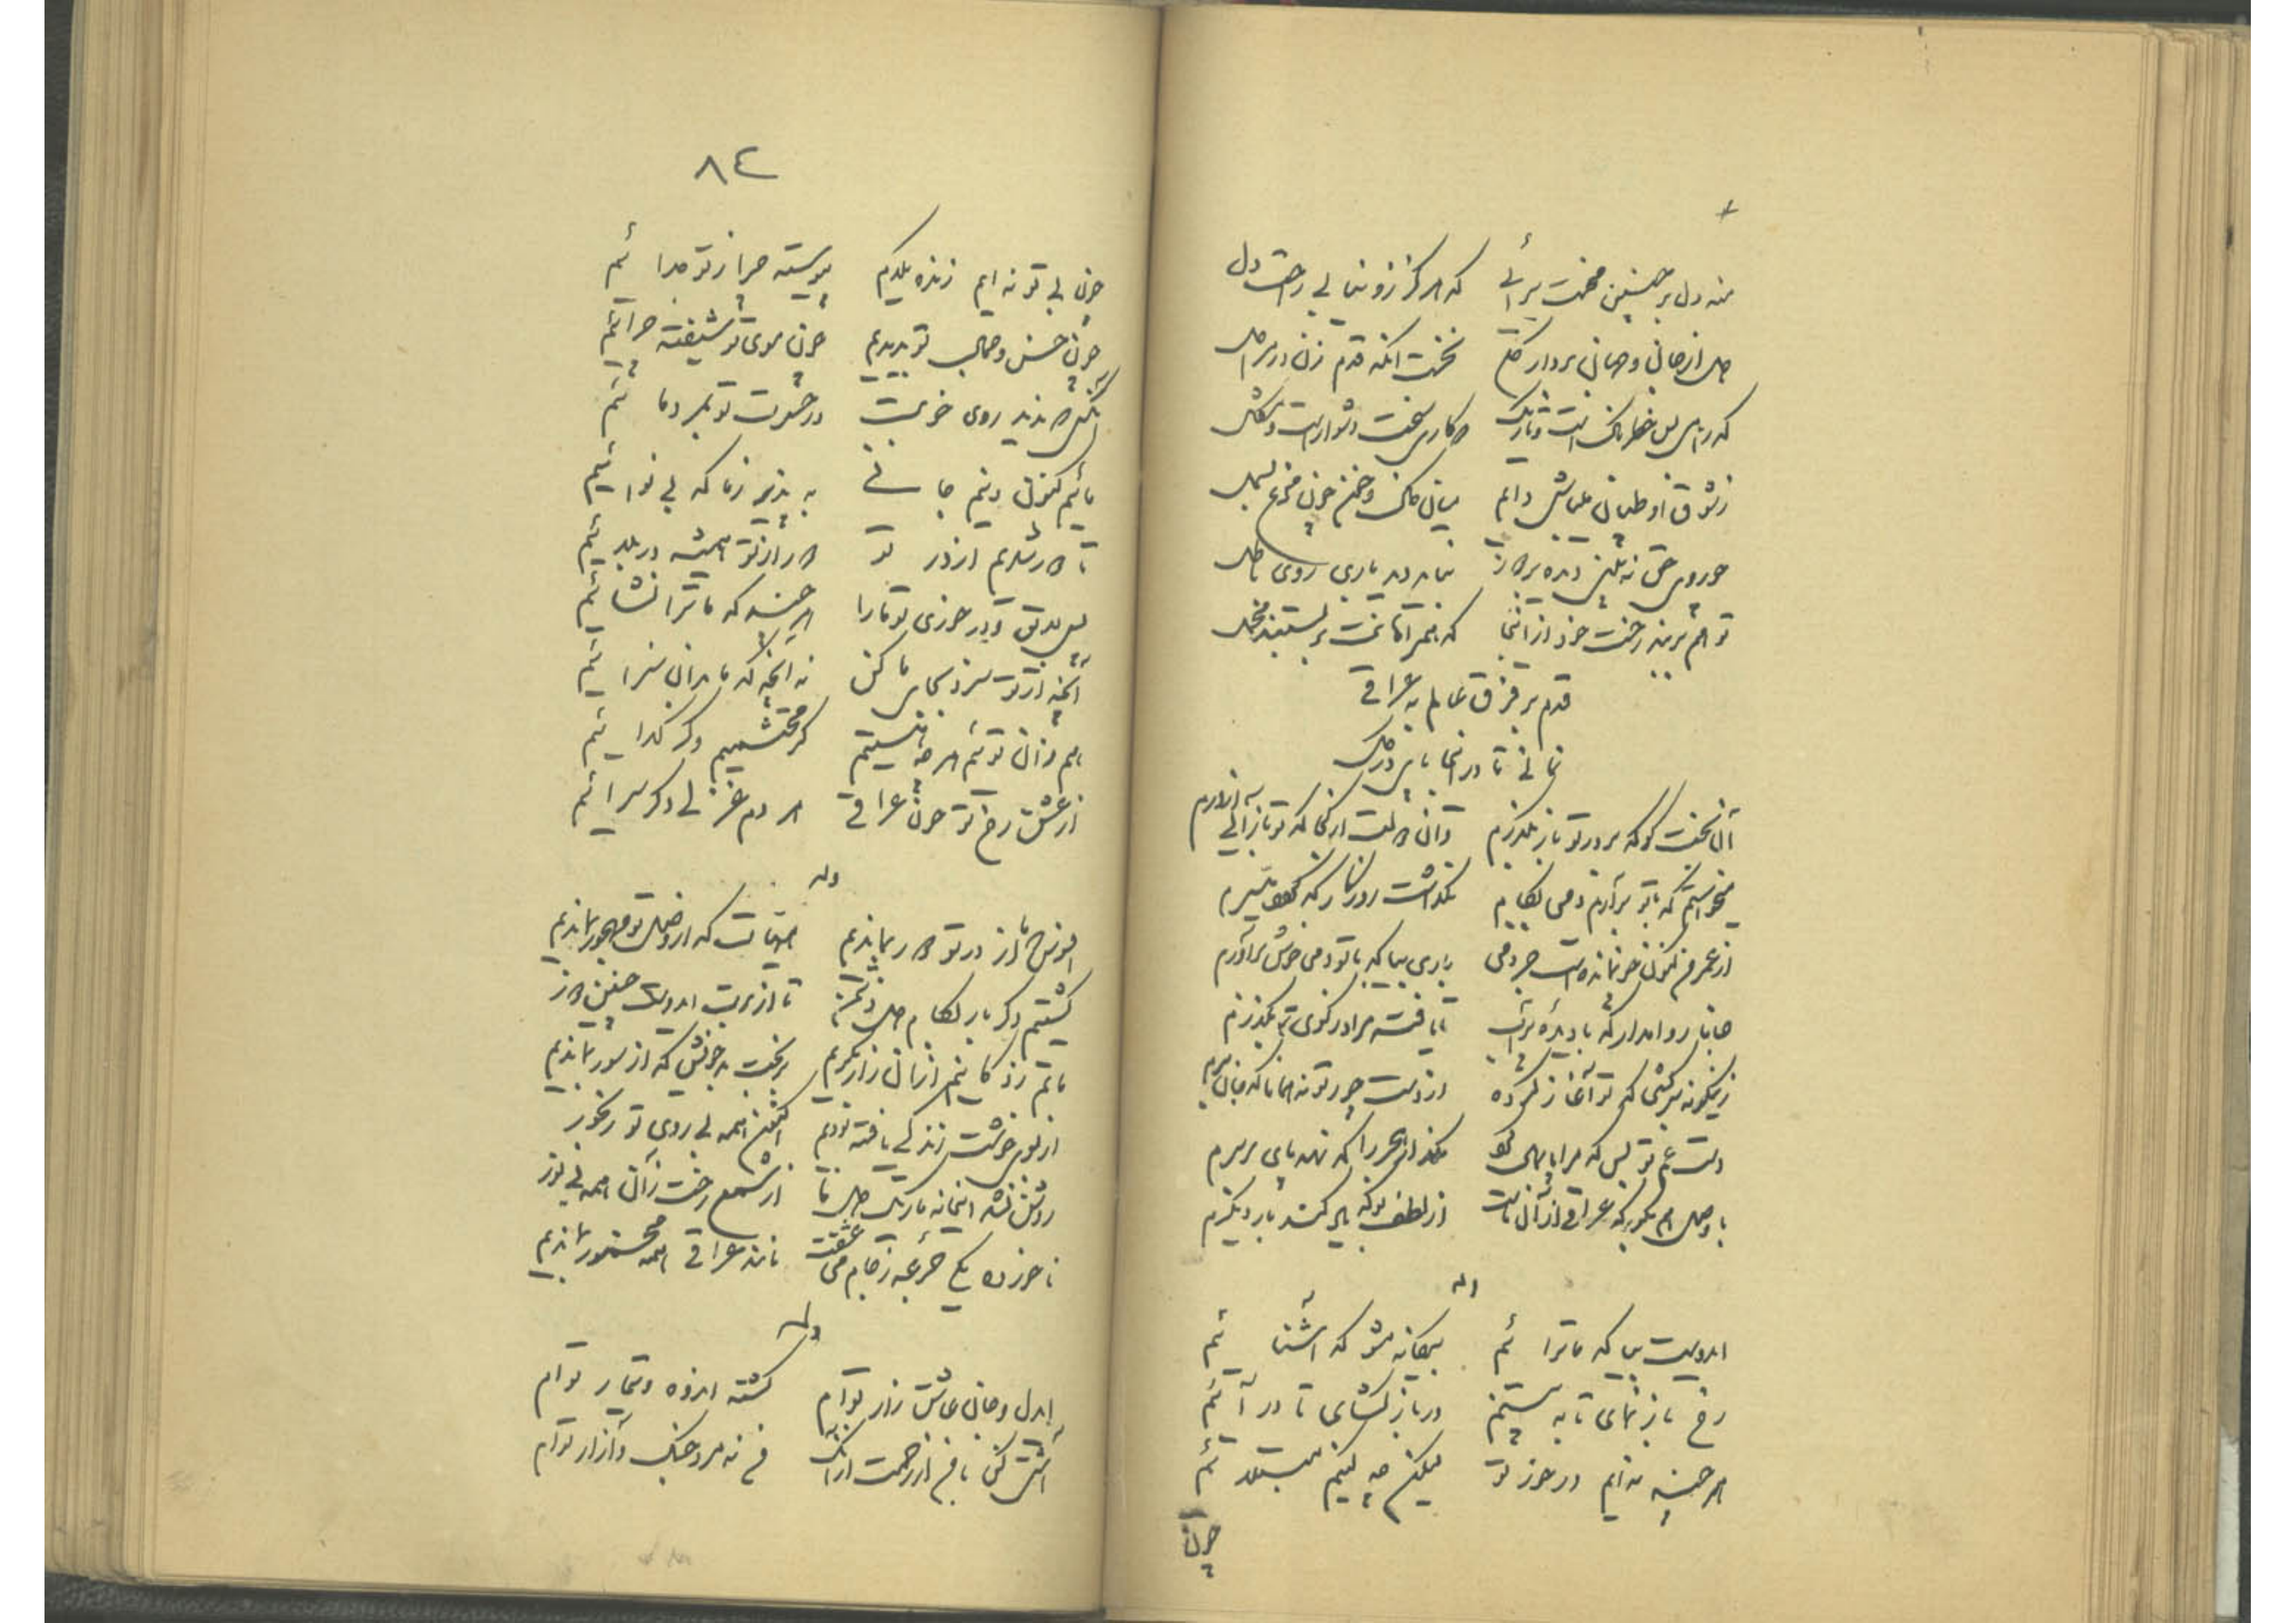 منه دل بر چنین محنت سرائی که هرگز زو نیابی راحت دل
دل از جان و جهان بردار کلی نخست آنگه قدم زن در مراحل
که راهی بس خطرناکست و تاریک که کاری سخت دشوارست و مشکل
ز شوق او طپان می باش دائم میان خاک و خون چون مرغ بسمل
چو روی حق نه بینی دیده بر دوز نباید دید باری روی باطل
تو هم بر بند رخت خود از آنجا که همراهانت بر بستند محمل
قدم بر فرق عالم نه عراقی
نمانی تا درینجا پای در گل
آن بخت کو که بر در تو باز بگذرم وآن دولت از کجا که تو بازآئی از درم
میخواستم که با تو برآرم دمی بکام نگذاشت روزگار که کامی میسرم
از عمر من کنون چو نماندست جز دمی باری بیا که با تو دمی خوش برآورم
جانا روا مدار که با دیده پر آب نایافته مراد ز کوی تو بگذرم
زینگونه سرکشی که تو آغاز کرده از دست جور تو نه همانا که جان برم
دست غم تو بس که مرا پایمال کرد مگذار هجر را که نهد پای بر سرم
با وصل هم بگو که عراقی از آن ماست از لطف تو که یاد کند بار دیگرم
وله
ایدوست بیا که ما ترا ئیم بیگانه مشو که آشنا ئیم
رخ باز نمای تا به بینیم در باز گشای تا در آئیم
هر چند نه ایم در خور تو لیکن چه کنیم مبتلا ئیم
چون
٨٤
چون بی تو نه ایم زنده یکدم پیوسته چرا ز تو جدا ئیم
چون حسن و جمال تو بدیدیم چون موی تو شیفته چرائیم
آنکس که ندید روی خوبت در حسرت تو بمرد و ما ئیم
مائیم کنون و نیم جانی به پذیر ز ما که بی نوائیم
تا دور شدیم از در تو دور از تو همیشه در بلائیم
بس لایق و در خوری تو ما را هر چند که ما ترا نشائیم
آنچه از تو سزد بجای ما کن نه آنچه که ما بدان سزا ئیم
هم زان توئیم هر چه هستیم گر محتشمیم وگر گدا ئیم
از عشق رخ تو چون عراقی هر دم غزلی دگر سرا ئیم
وله
افسوس که باز از در تو دور بماندیم هیهات که از وصل تو مهجور بماندیم
گشتیم دگر بار بکام دل دشمن تا از رخت ایدوست چنین دور
ماتم زدگانیم از آن زار بگرییم بر بخت بد خویش که از سور بماندیم
از بوی خوشت زندگی یافته بودیم اکنون همه بی روی تو رنجور
روشن نشد اینخانه تاریک دل ما از شمع رخت زان همه بی نور
ناخورده یکی جرعه ز جام می عشقت مانند عراقی همه مخمور بماندیم
وله
ایدل و جان عاشق زار توام کشته اندوه و تیمار توام
آشتی کن با من از رحمت از آنک من نه مرد جنگ و آزار توام